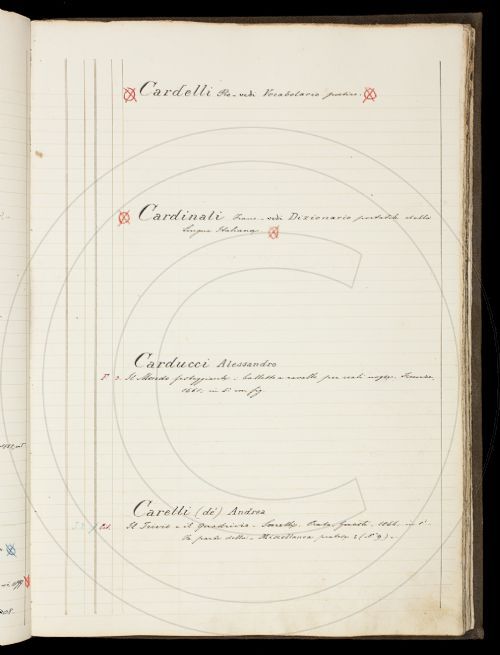 Cardelli Pio - vedi Vocabolario poetico.
Cardinali Franc - vedi Dizionario portatile della
lingua Italiana.
Carducci Alessandro
Il Mondo festeggiante - balletto a cavallo per reali nozze. Firenze,
1661. in 8º con fig.
Carelli (de') Andrea
Il Trivio e il Quadrivio - 1864. in 8º
Fa parte della - Miscellanea